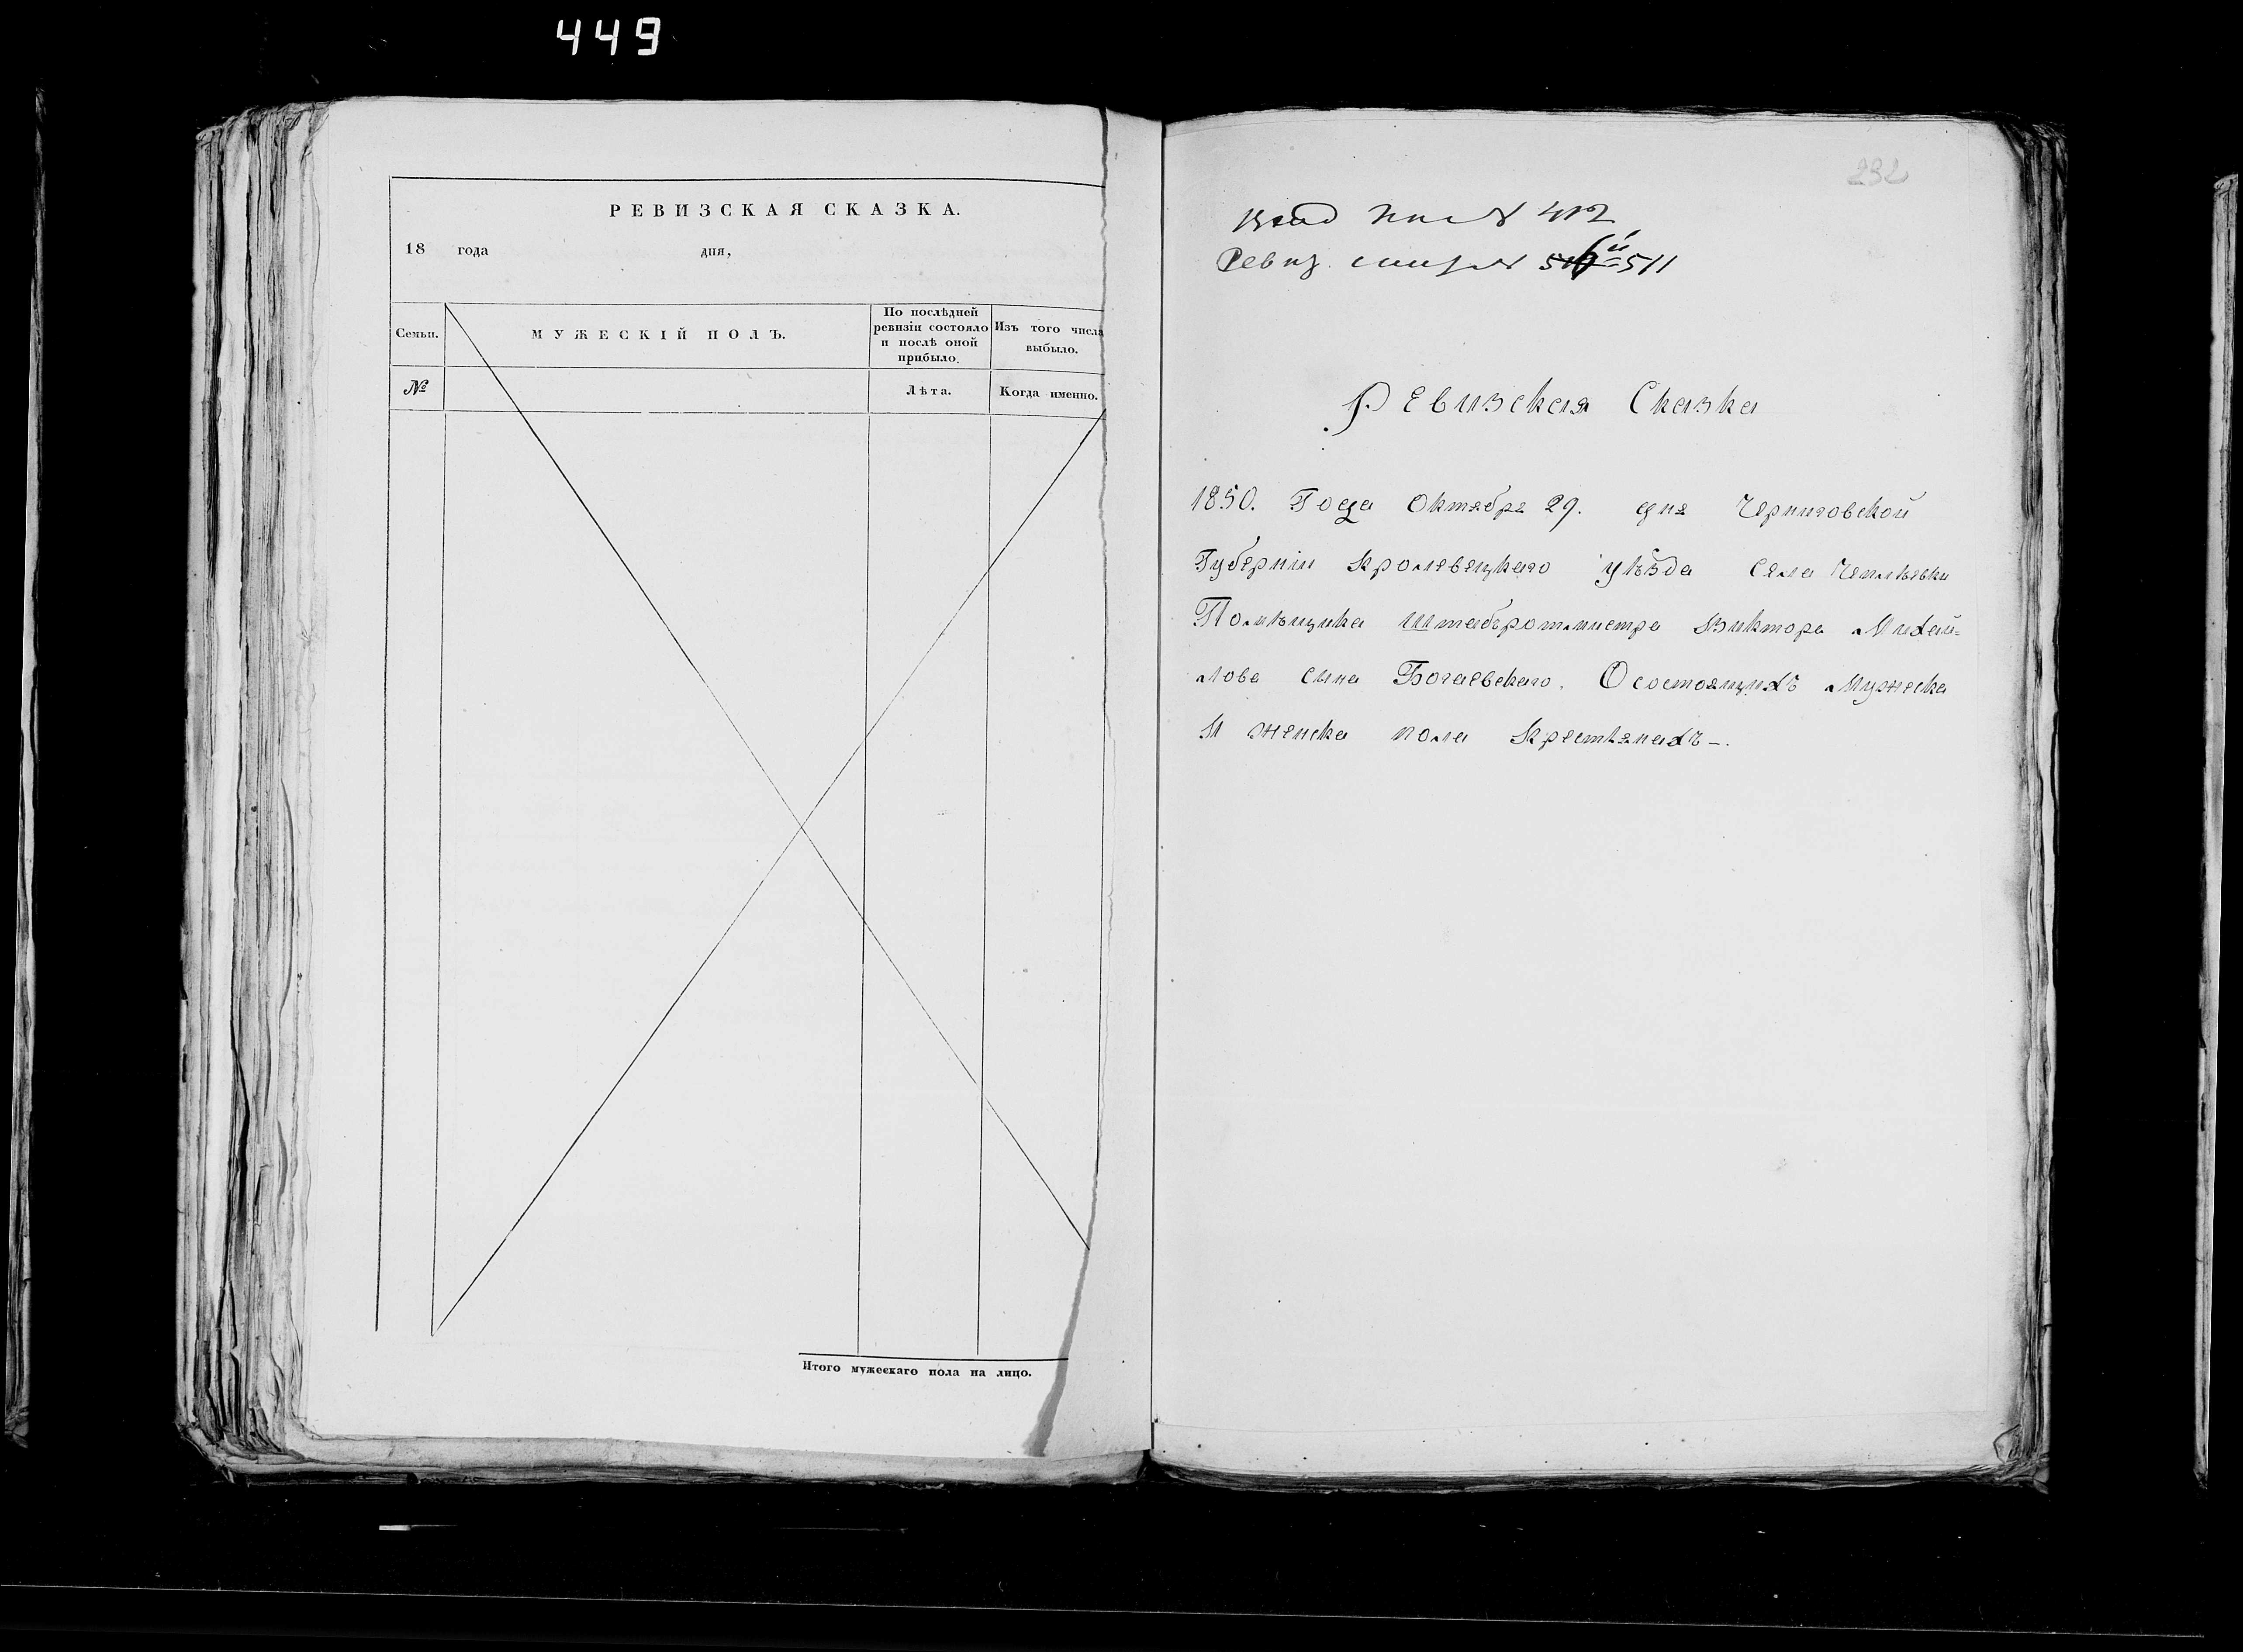 449
РЕВИЗСКАЯ СКАЗКА.
18 года дня,
Семьи.
МУЖЕСКІЙ ПОЛЪ.
По послѣдней
ревизіи состояло
и послѣ оной
прибыло.
Изъ того числа
выбыло.
№
Лѣта.
Когда именно.
Итого мужескаго пола на лицо.
232
№ 412
Ревиз. 511
Ревизская Сказка
1850. Года Октября 29. дня Черниговской
Губерніи Кролевецкаго уѣзда Села Чеплѣевки
Помѣщика Штабъротмистра Виктора Михай-
лова сына Богаевскаго. О состоящихъ Мужеска
И женска пола Крестянахъ-.